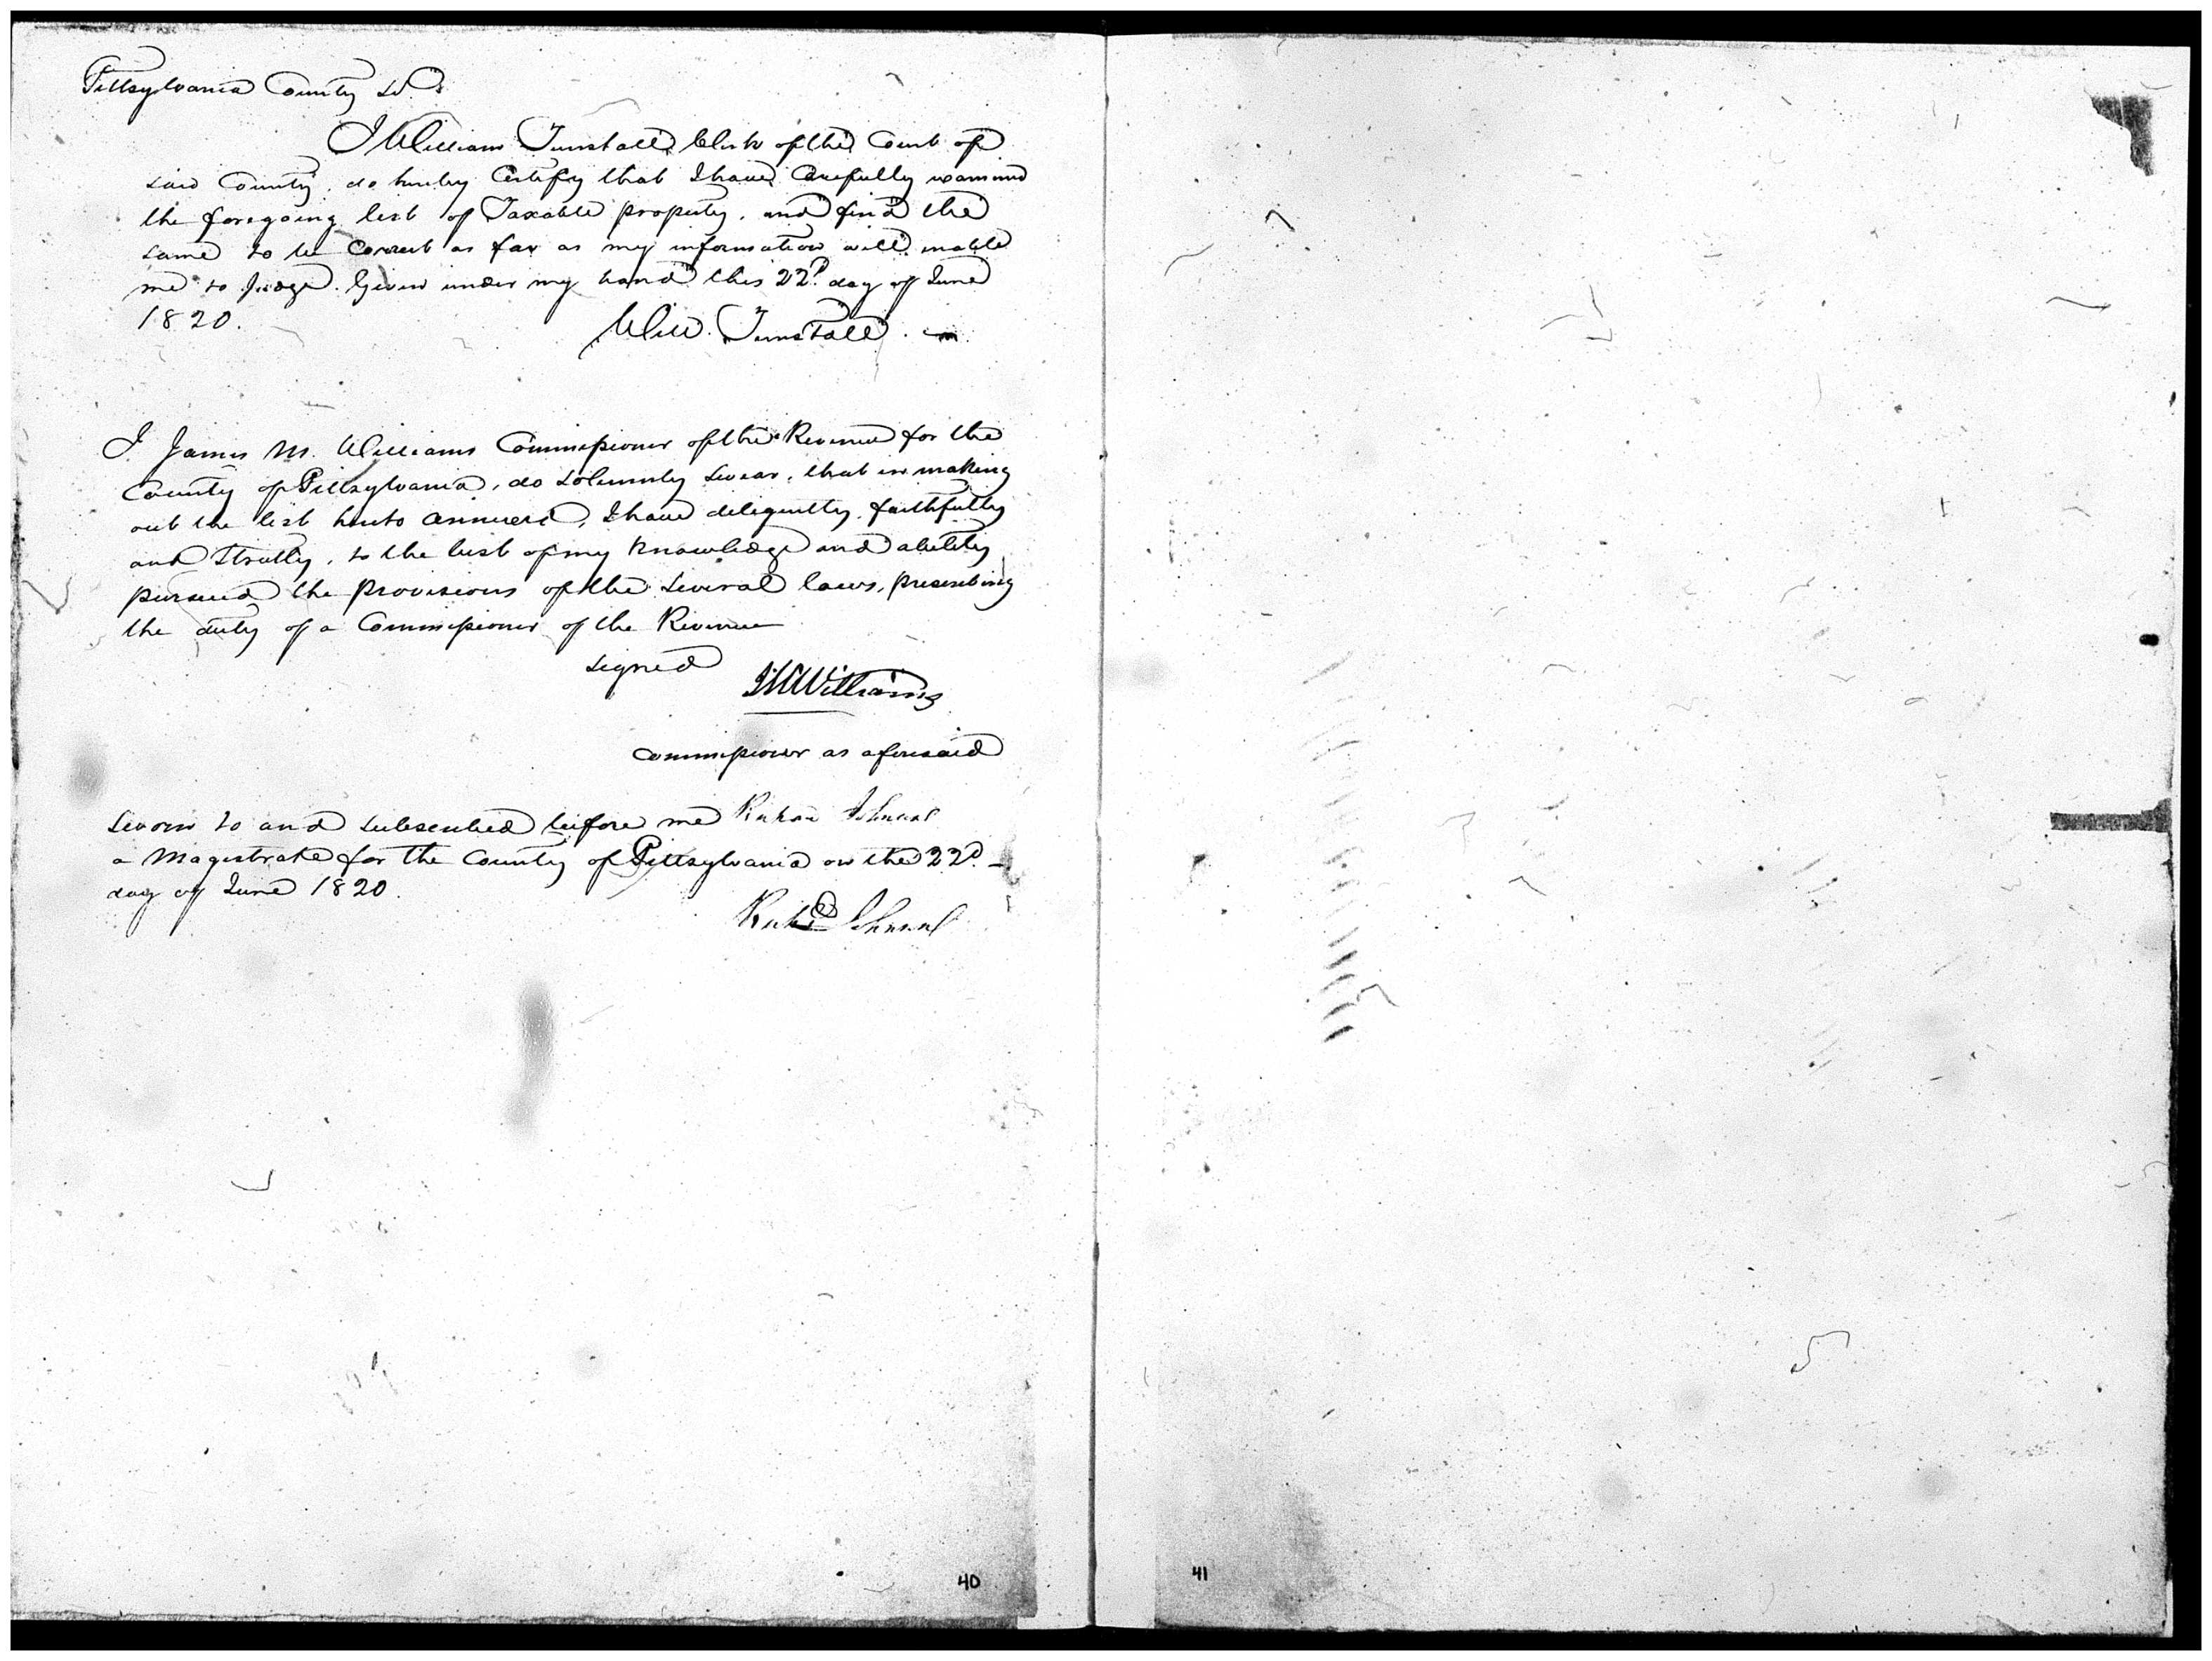 Pittsylvania County Sct.
I William Tunstall Clerk of the Court of
said County, do hereby Certify that I have Carefully examined
the foregoing list of Taxable property, and find the
same to be Correct as far as my information will enable
me to Judge. Given under my hand this 22d. day of June
1820.
Will. Tunstall.
I James M. Williams Commissioner of the Revenue for the
County of Pittsylvania, do Solemnly Swear, that in making
out the list hereto annexed, I have diligently, faithfully
and Strictly, to the best of my Knowledge and ability
pursued the provisions of the Several laws, prescribing
the duty of a Commissioner of the Revenue
Signed
JMWilliams
Commissioner as aforesaid
Sworn to and Subscribed before me Richard Johnson
a Magistrate for the County of Pittsylvania on the 22d.
day of June 1820.
Richd Johnson
40
41